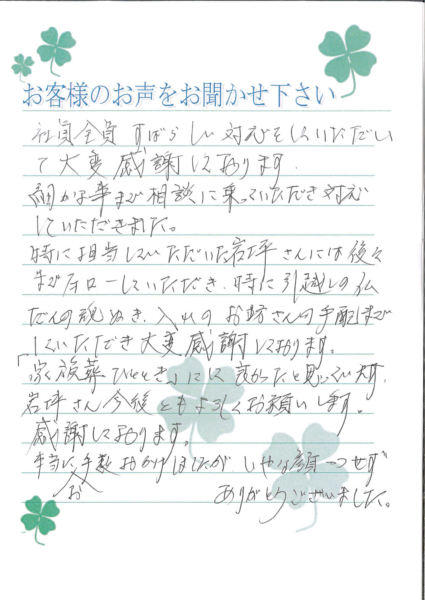 お客様のお声をお聞かせ下さい
社員全員 すばらしい対応をしていただい
て大変感謝しております.
細かな事まで相談に乗っていただき対応
していただきました。
特に担当していただいた岩坪さんには後々
までフォローしていただき、特に引越しの仏
だんの魂ぬき、入れの お坊さんの手配まで
していただき大変感謝しております。
「家族葬ひととき」にして良かったと思っています。
岩坪さん今後ともよろしくお願いします。
感謝しております。
本当にお手数おかけしましたが いやな顔一つせず
ありがとうございました。